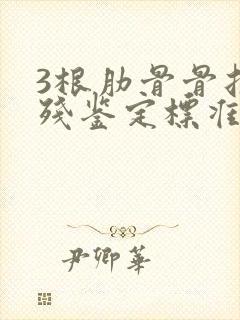 3根肋骨骨折
残鉴定标准
尹卿華